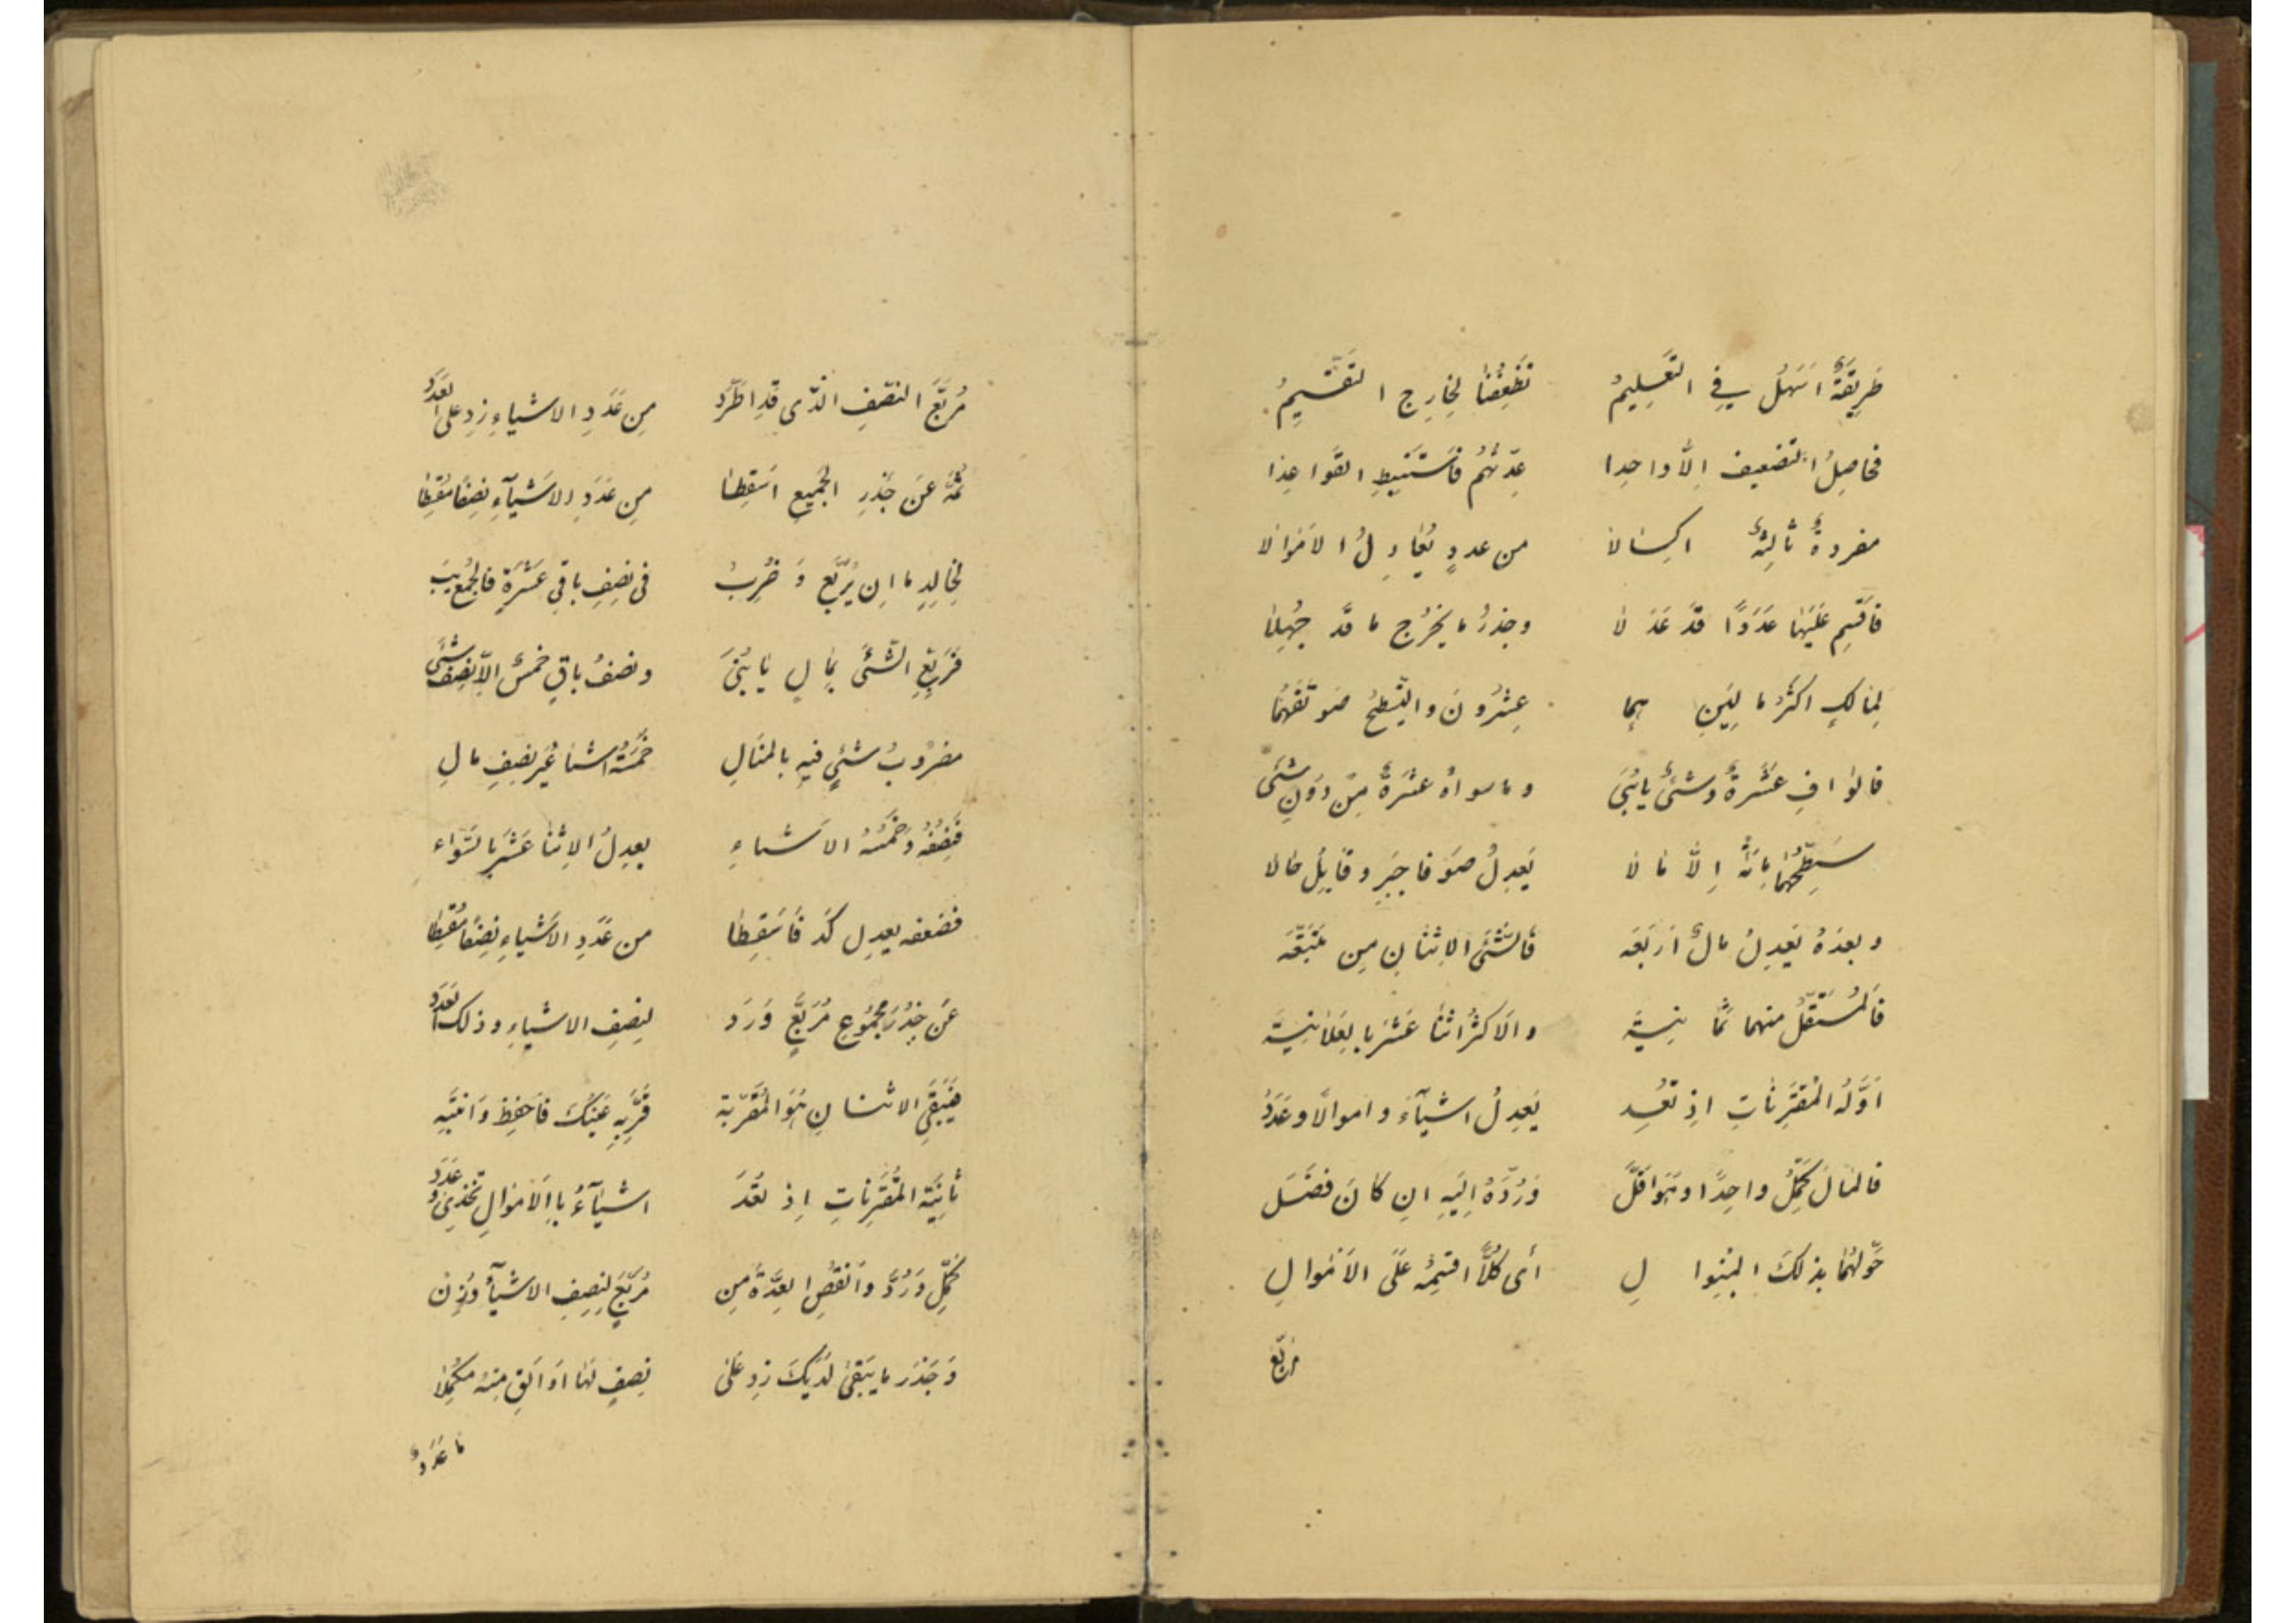 طَرِيقَةٌ اَسْهَلُ فِي التَّعْلِيمُ تَضْعِيفُنَا لِخَارِجِ التَقْسِيمُ
فحاصِلُ التضعيف اِلّا واحدا عِدّتُهُم فَاسْتَنْبِطِ القَوا عِدَا
مفردةٌ ثالِثَةٌ اكسالا من عددٍ يُعادِلُ الاَمْوالا
فَاقْسِم عَلَيْها عَدَدًا قَدْ عَدَلا وجذرُ ما يَخْرُج ما قَد جُهِلا
لِمَالِكٍ اكثَرُ مالَيْنِ بِهِما عِشْرُونَ والتّسْطِيحُ صَو تَفَهَّما
قالوا افِ عَشَرةٌ وشئٌ يا بُنَيَّ وماسواهُ عَشَرَةٌ مِنْ دُونِ شَئ
سَطِّحْهُما مِائَةٌ اِلّا مالا يَعدِلُ صَو فاجبَر وقابِل حالا
وبعدَهُ يَعدِلُ مالٌ اَربَعَه فالشَئُ الاِثنانِ مِن مُتَّبَعَه
فَالمُسْتَقَلُّ منهما ثَمانِيَة والاَكثَرُ اثنا عَشَر بالعَلانِيَة
اَوّلَةُ المُقتَرِناتِ اِذ تُعَد يَعدِلُ اشيآءَ وَاموالًا وعَدَدُ
فالمالَ كَمِّلْ واحِدًا وهوَ اَقَلّ وَرُدَّهُ اِلَيهِ ان كانَ فضَل
حَوِّلهُما بذلكَ المِنوالِ أى كُلًّا اقسِمْهُ عَلَى الاَمْوالِ
مربّع
مُرَبَّعَ النصْفِ الّذى قَدِ اطَّرَد مِن عَدَدِ الاشياءِ زِد على العَدَد
ثمّ عَنْ جَذْرِ الجَمِيعِ اسْقِطا مِن عَدَدِ الاَشْيآءِ نِصْفًا مُقْسِطا
لِخالِدٍ ما اِن يُرَبَّع وَ ضُرِبْ فى نصْفِ باقِي عَشْرَةٍ فالجَمعُ يَبْ
فَرَبِّعِ الشَّئَ بِمالٍ يا بُنَيَّ ونصفُ باقٍ خمسٌ اِلّا نِصفَ شئ
مضرُوبُ شَئٍ فيهِ بالمنَالِ خَمْسَةُ اشيا غَيرَ نِصفِ مالِ
فَنِصْفُهُ وَخَمْسَةُ الاَشياءِ يعدِلُ الاِثنا عَشَر بالسَّواء
فضعفه يعدِل كَد فَاَسقِطا من عَدَدِ الاَشياءِ نِصفًا مُقْسِطا
عَن جَذْرِ مَجمُوعِ مُرَبَّعٍ وَرَد لِنِصفِ الاشياءِ وذلك العَدَد
فَيَبقَى الاثنانِ هُوَ المُقَرَّبَة قَرِّبهِ عَيْنَكَ فَاحفَظ وَانتَبِه
ثانِيَة المُقتَرِناتِ اِذ تُعَدّ اشيآءُ بالاَموالِ تَحْذِي عَدَد
كَمِّل وَرُدَّ وانقُصِ العِدَّةَ مِن مُرَبَّعٍ لِنِصفِ الاشيآءِ وُزِن
وَجَذرَ ما يَبقى لَدَيكَ زِد عَلى نِصفٍ لَها اَو اَلقِ مِنهُ مكمِلا
ما عَدَدٌ